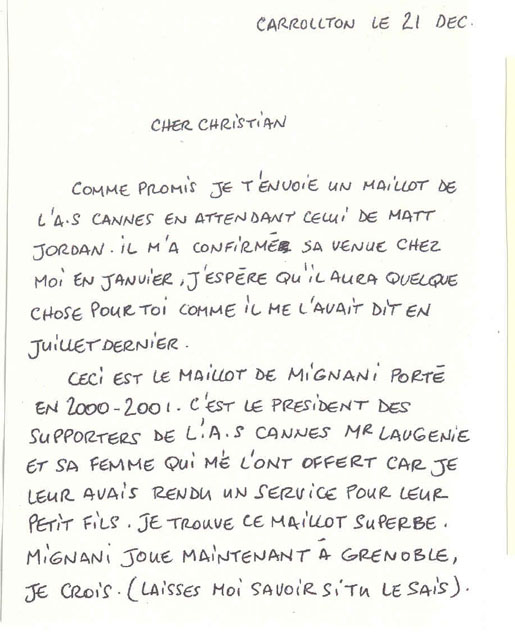 CARROLLTON LE 21 DEC.
CHER CHRISTIAN
COMME PROMIS JE T'ENVOIE UN MAILLOT DE
L'A.S CANNES EN ATTENDANT CELUI DE MATT
JORDAN. IL M'A CONFIRMÉ SA VENUE CHEZ
MOI EN JANVIER, J'ESPÈRE QU'IL AURA QUELQUE
CHOSE POUR TOI COMME IL ME L'AVAIT DIT EN
JUILLET DERNIER.
CECI EST LE MAILLOT DE MIGNANI PORTÉ
EN 2000-2001. C'EST LE PRESIDENT DES
SUPPORTERS DE L'A.S CANNES MR LAUGENIE
ET SA FEMME QUI ME L'ONT OFFERT CAR JE
LEUR AVAIS RENDU UN SERVICE POUR LEUR
PETIT FILS. JE TROUVE CE MAILLOT SUPERBE.
MIGNANI JOUE MAINTENANT À GRENOBLE,
JE CROIS. (LAISSES MOI SAVOIR SI TU LE SAIS).